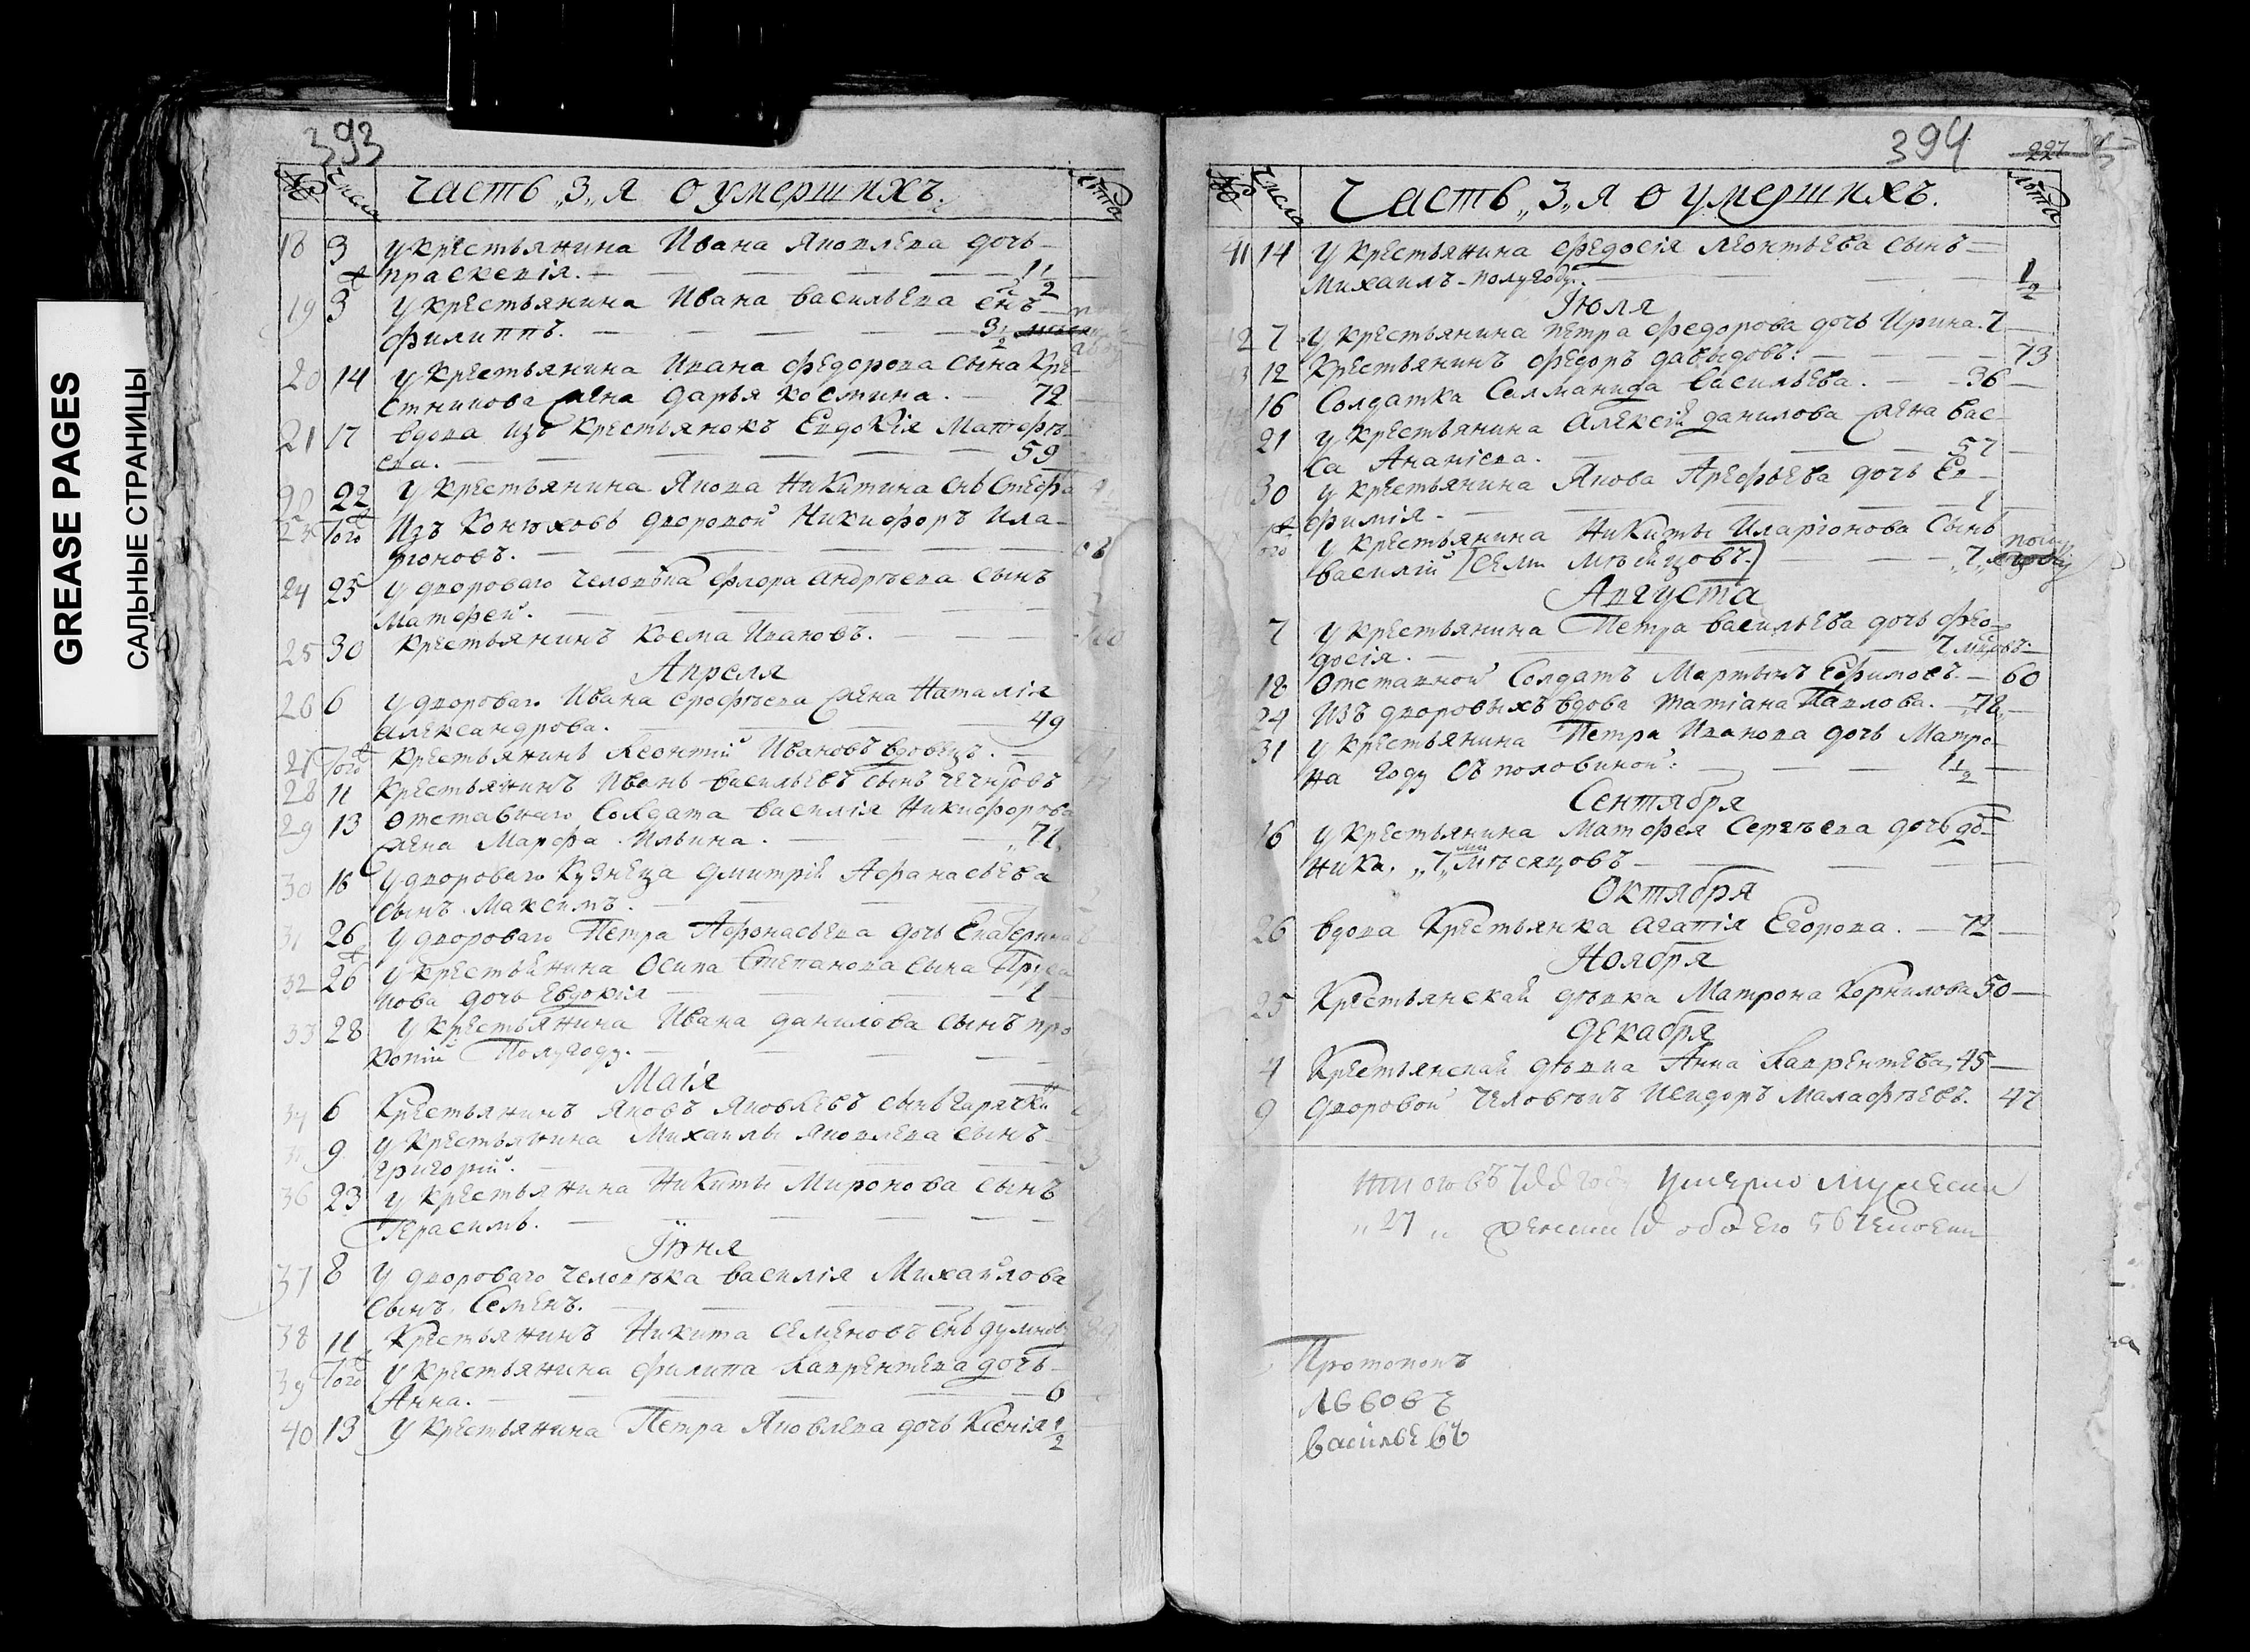 GREASE PAGES
САЛЬНЫЕ СТРАНИЦЫ
393
№ Числа Часть „3„я о умершихъ. Лѣта
18 3 У крестьянина Ивана Яковлева дочь
Праскевія. 1 1/2
19 3 У крестьянина Ивана Васильева снъ
Филиппъ. 3 1/2
20 14 У крестьянина Ивана Федорова сына Кре-
стникова жена Дарья Космина. 72
21 17 Вдова изъ крестьянокъ Евдокія Матфѣ-
ева. 59
22 22 У крестьянина Якова Никитина снъ Стефа
23 Того Изъ конюховъ дворовой Никифоръ Ила-
ріоновъ.
24 25 У двороваго человѣка Флора Андрѣева сынъ
Матфей.
25 30 Крестьянинъ Косма Ивановъ.
Апреля
26 6 У двороваго Ивана Ерофѣева жена Наталія
Александрова. 49
27 Того Крестьянинъ Леонтій Ивановъ вдовецъ.
28 11 Крестьянинъ Иванъ Васильевъ сынъ
29 13 Отставнаго солдата Василія Никифорова
жена Марфа Ильина. „71„
30 16 У двороваго кузнеца Дмитрій Афанасьева
сынъ Максимъ.
31 26 У двороваго Петра Афонасьева дочь Екатерина
32 26 У крестьянина Осипа Степанова сына
нова дочь Евдокія 1
33 28 У крестьянина Ивана Данилова сынъ Про
копій Полугоду.
Маія
34 6 Крестьянинъ Яковъ Яковлевъ сынъ
9 У крестьянина Михаилы Яковлева сынъ
Григорій. 3
36 23 У крестьянина Никиты Миронова сынъ
Герасимъ.
Іюня
37 8 У двороваго человѣка Василія Михайлова
сынъ Семенъ.
38 11 Крестьянинъ Никита Семеновъ снъ
39 Того У крестьянина Филипа Лаврентьева дочь
Анна. 6
40 13 У крестьянина Петра Яковлева дочь Ксенія 1/2
394
227
№ Число Часть „3„я о умершихъ. Лѣта
41 14 У крестьянина Федосія Леонтьева сынъ
Михаилъ полугоду. 1/2
Іюля
7 У крестьянина Петра Федорова дочь Ирина. 7
12 Крестьянинъ Федоръ Давыдовъ. 73
16 Солдатка Салманида Васильева. 36
21 У крестьянина Алексій Данилова жена Вас-
са Ананіева. 57
30 У крестьянина Якова Арефьева дочь Ев-
фимія. 1
У крестьянина Никиты Иларіонова сынъ
Василій [семи мѣсяцовъ.] „7„
Августа
7 У крестьянина Петра Васильева дочь Фео-
досія. 7
18 Отставной солдатъ Мартынъ Ефимовъ. 60
24 Изъ дворовыхъ вдова Татіана Павлова. 78
31 У крестьянина Петра Иванова дочь Матро-
на году съ половиной. 1 1/2
Сентября
16 У крестьянина Матфея Сергѣева дочь До-
ника. „7„ми мѣсяцовъ
Октября
26 Вдова крестьянка Агапія Егорова. 72
Ноября
25 Крестьянская дѣвка Матрона Корнилова 50
Декабря
4 Крестьянская дѣвка Анна Лаврентьева 45
9 Дворовой человѣкъ Исидоръ Малафѣевъ. 47
умерло мужеска
„27„ женска обоего 56
Протопопъ
Львовъ
Васильевъ